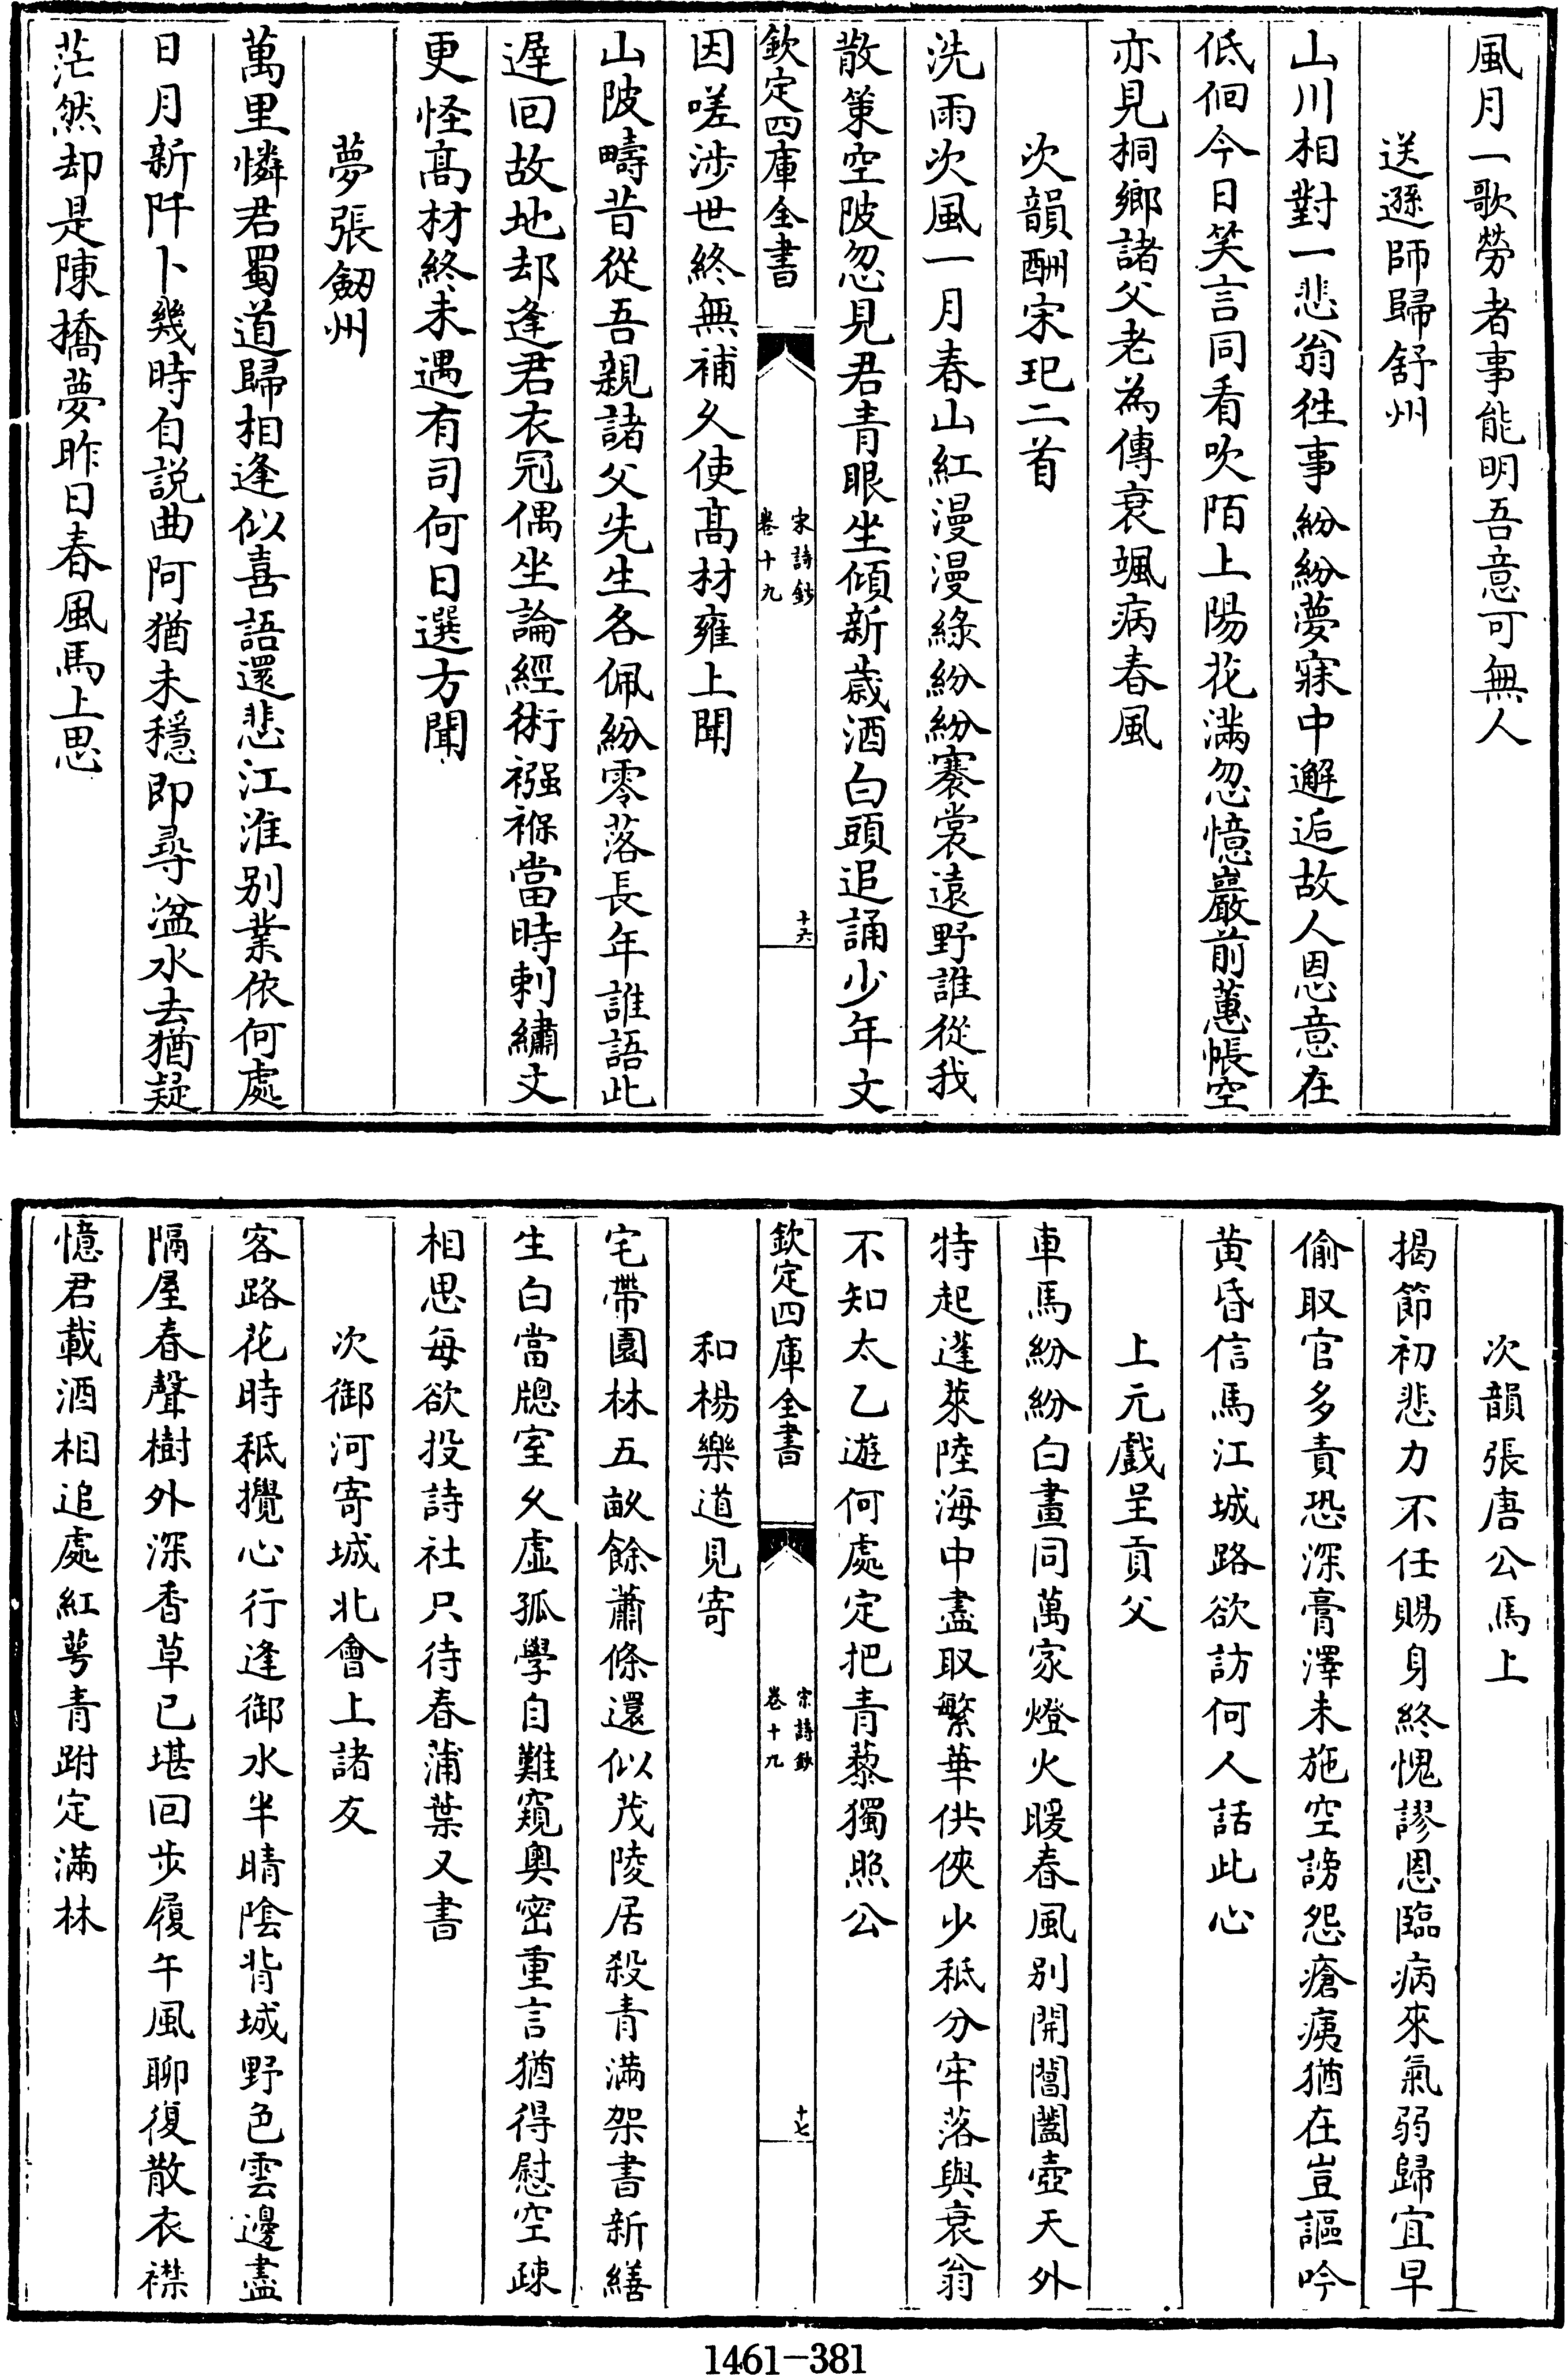 風月一歌勞者事能明吾意可無人
送遜師歸舒州
山川相對一悲翁徃事紛紛夢寐中邂逅故人恩意在
低佪今日笑言同看吹陌上陽花滿忽憶巖前蕙帳空
亦見桐鄉諸父老為傳衰颯病春風
次韻酬宋玘二首
洗雨次風一月春山紅漫漫綠紛紛褰裳遠野誰從我
散策空陂忽見君青眼坐傾新歲酒白頭追誦少年文
欽定四庫全書
宋詩鈔
卷十九
十六
因嗟涉世終無補久使髙材雍上聞
山陂疇昔從吾親諸父先生各佩紛零落長年誰語此
遲回故地却逢君衣冠偶坐論經術襁褓當時刺繡文
更怪髙材終未遇有司何日選方聞
夢張劒州
萬里憐君蜀道歸相逢似喜語還悲江淮别業依何處
日月新阡卜幾時自說曲阿猶未穩即尋湓水去猶疑
茫然却是陳橋夢昨日春風馬上思
次韻張唐公馬上
揭節初悲力不任賜身終愧謬恩臨病來氣弱歸宜早
偷取官多責恐深膏澤未施空謗怨瘡痍猶在豈謳吟
黄昏信馬江城路欲訪何人話此心
上元戲呈貢父
車馬紛紛白晝同萬家燈火暖春風别開閶闔壺天外
特起蓬萊陸海中盡取繁華供俠少秪分牢落與衰翁
不知太乙遊何處定把青藜獨照公
欽定四庫全書
宋詩鈔
卷十九
十七
和楊樂道見寄
宅帶園林五畝餘蕭條還似茂陵居殺青滿架書新繕
生白當牕室久虚孤學自難窺奧密重言猶得慰空疎
相思每欲投詩社只待春蒲葉又書
次御河寄城北會上諸友
客路花時秪攪心行逢御水半晴陰背城野色雲邊盡
隔屋春聲樹外深香草已堪回步履午風聊復散衣襟
憶君載酒相追處紅萼青跗定滿林
1461-381